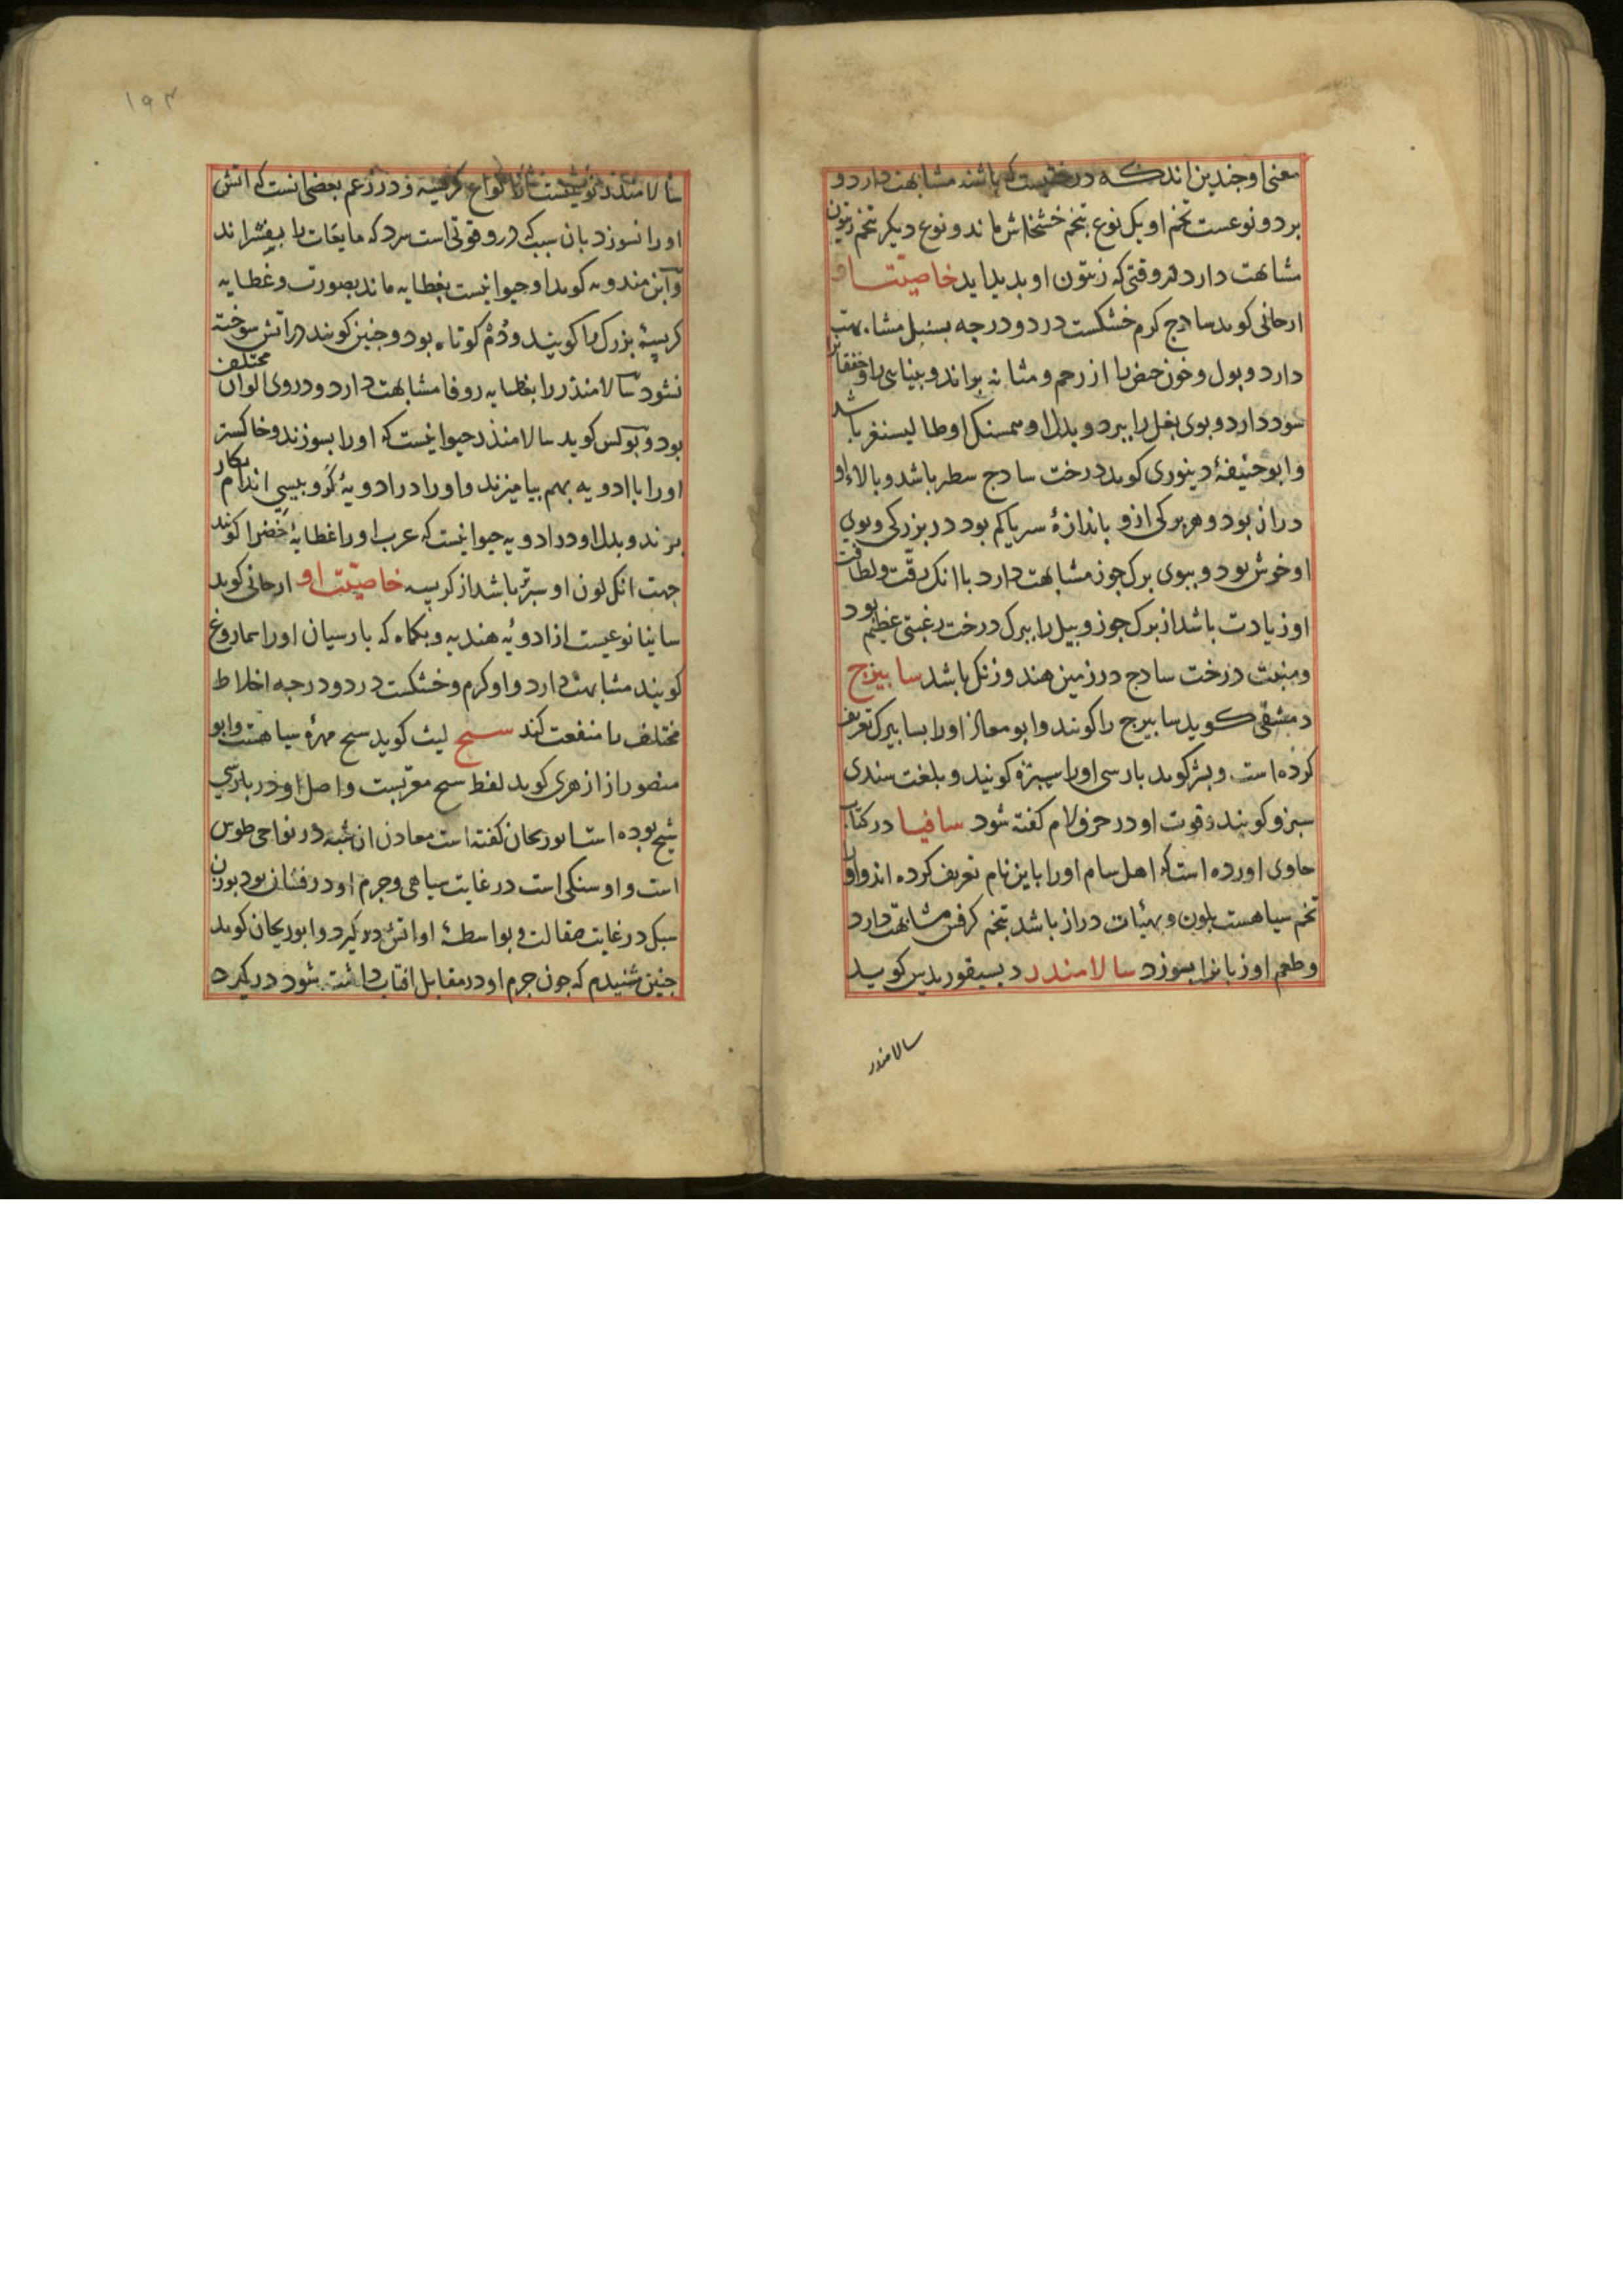 معنی او چندین اند که درختیست که باشد مشابهت دارد و
بر دو نوعست تخم او یک نوع بتخم خشخاش ماند و نوع دیکر بتخم زیتون
مشابهت دارد در وقتی که زیتون او بدید اید خاصیت او
ارحانی کوید سادج کرم خشکست در دو درجه بسنبل مشابهت
دارد و بول و خون حیض را از رحم و مشانه براند و بینایی را و خفقانرا
سود دارد و بوی بغل را ببرد و بدل او همسنک او طالیسفر باشد
و ابو حنیفهٔ دینوری کوید درخت سادج سطبر باشد و بالاء او
دراز بود و هر برکی ازو باندازهٔ سر یا کم بود در بزرکی و بوی
او خوش بود و ببوی برک جوز مشابهت دارد با انک رقت و لطافت
او زیادت باشد از برک جوز و بیل را ببرک درخت رغبتی عظیم بود
و منبت درخت سادج در زمین هند و زنک باشد سابیزج
دمشقی کوید سابیزج را کویند و ابو معاذ او را بسابیزک تعریف
کرده است و بشر کوید بارسی او را سبیزه کویند و بلغت سندی
سبزو کویند و قوت او در حرف لام کفته شود سافیا در کتاب
حاوی اورده است که اهل سام او را باین نام تعریف کرده اند و او
تخم سیاهست بلون و بهیئات دراز باشد بتخم کرفس مشابهت دارد
و طعم او زبانرا بسوزد سالامندر دیسیقوریدس کوید
سالامندر
۱۹۳
سالامندر نوعیست از انواع کربسه و در زعم بعضی انست که اتش
او را نسوزد بان سبب که درو قوتی است سرد که مایعات را بیفشراند
و ابن مندویه کوید او حیوانیست بغطایه ماند بصورت و غطایه
کربسهٔ بزرک را کویند و دُم کوتاه بود و چنین کویند در اتش سوخته
نشود سالامندر را بغطایه روفا مشابهت دارد و در وی الوان مختلف
بود و بولس کوید سالامندر حیوانیست که او را بسوزند و خاکستر
او را با ادویه بهم بیامیزند و او را در ادویهٔ کر و بیسی اندام بکار
برند و بدل او در ادویه حیوانیست که عرب او را غطایهٔ خضرا کویند
جهت انک لون او سبزتر باشد از کربسه خاصیت او ارحانی کوید
سانیا نوعیست از ادویهٔ هندیه و بکماه که بارسیان او را سماروغ
کویند مشابهت دارد و او کرم و خشکست در دو درجه اخلاط
مختلف را منفعت کند سبج لیث کوید سبج مهرهٔ سیاهست و ابو
منصور از ازهری کوید لفظ سبج معربست و اصل او در بارسی
شبج بوده است ابو ریحان کفته است معادن ان شبه در نواحی طوس
است و او سنکی است در غایت سیاهی و جرم او درفشان بود بوزن
سبک در غایت صقالت و بواسطهٔ او اتش در کیرد و ابو ریحان کوید
چنین شنیدم که چون جرم او در مقابل افتاب داشته شود در کیرد